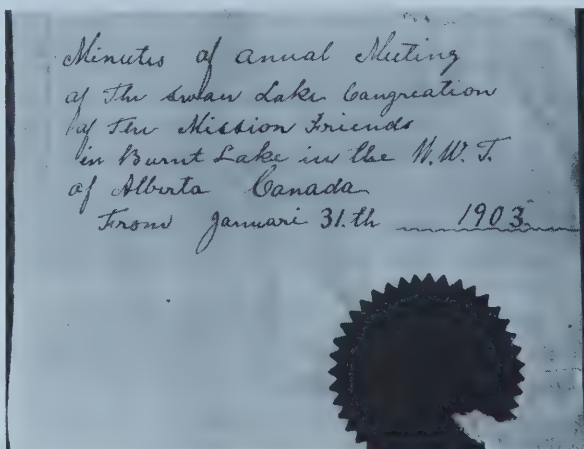 Minutes of Anual Meeting
of The Swan Lake Congreation
of The Mission Friends
in Burnt Lake in the N.W.T.
of Alberta Canada
From Januari 31.th 1903.